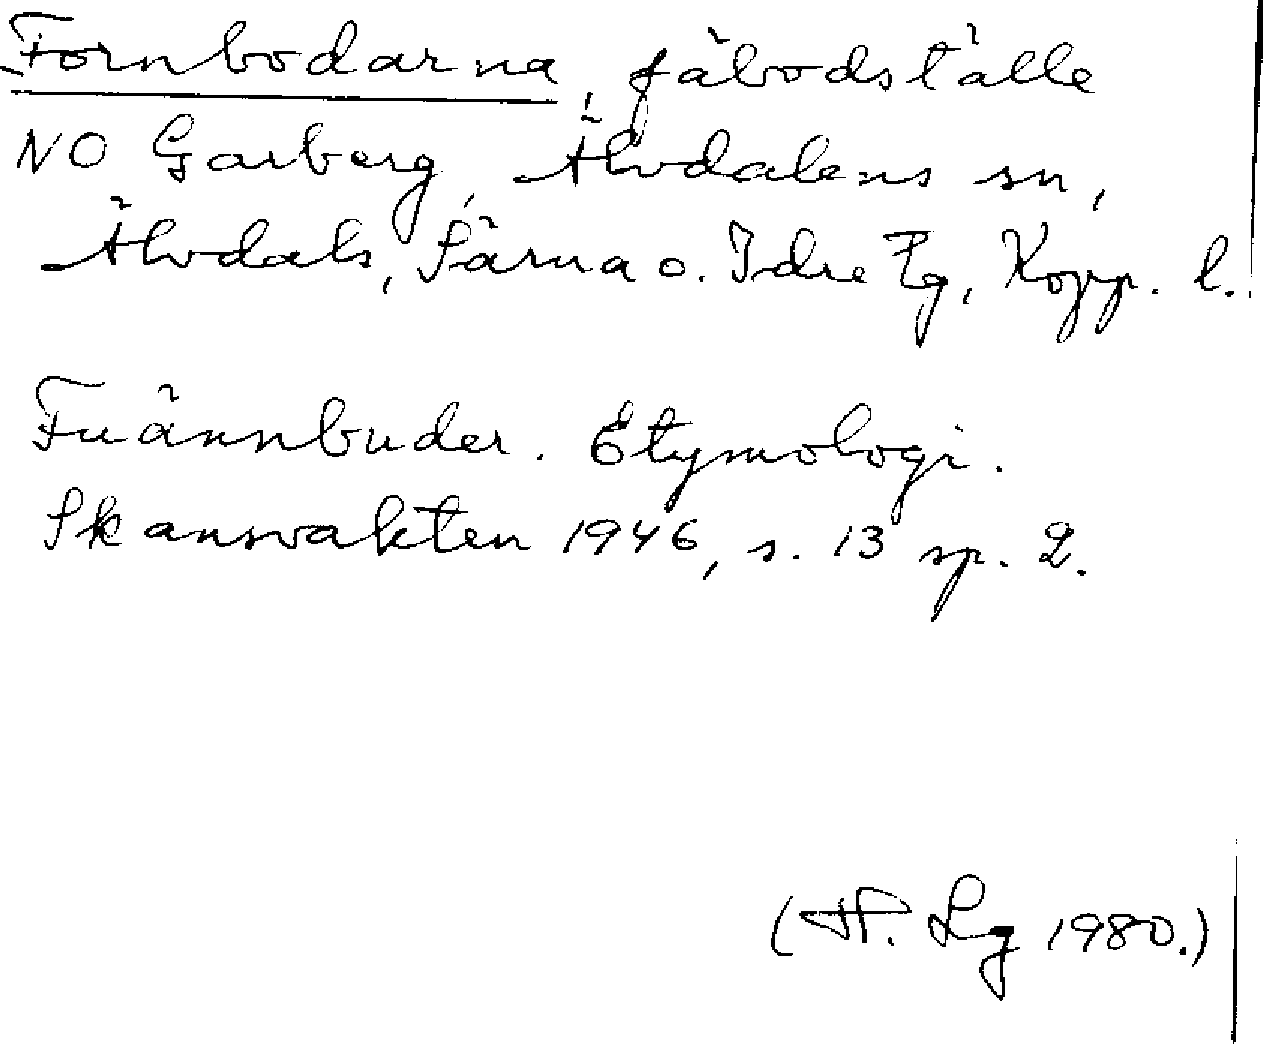 Fornbodarna, fäbodställe
NO Garberg, Älvdalens sn,
Älvdals, Särna o. Idre tg, Kopp. l.
Fuännbuder. Etymologi.
Skansvakten 1946, s. 13 sp. 2.
(H. Lg 1980.)